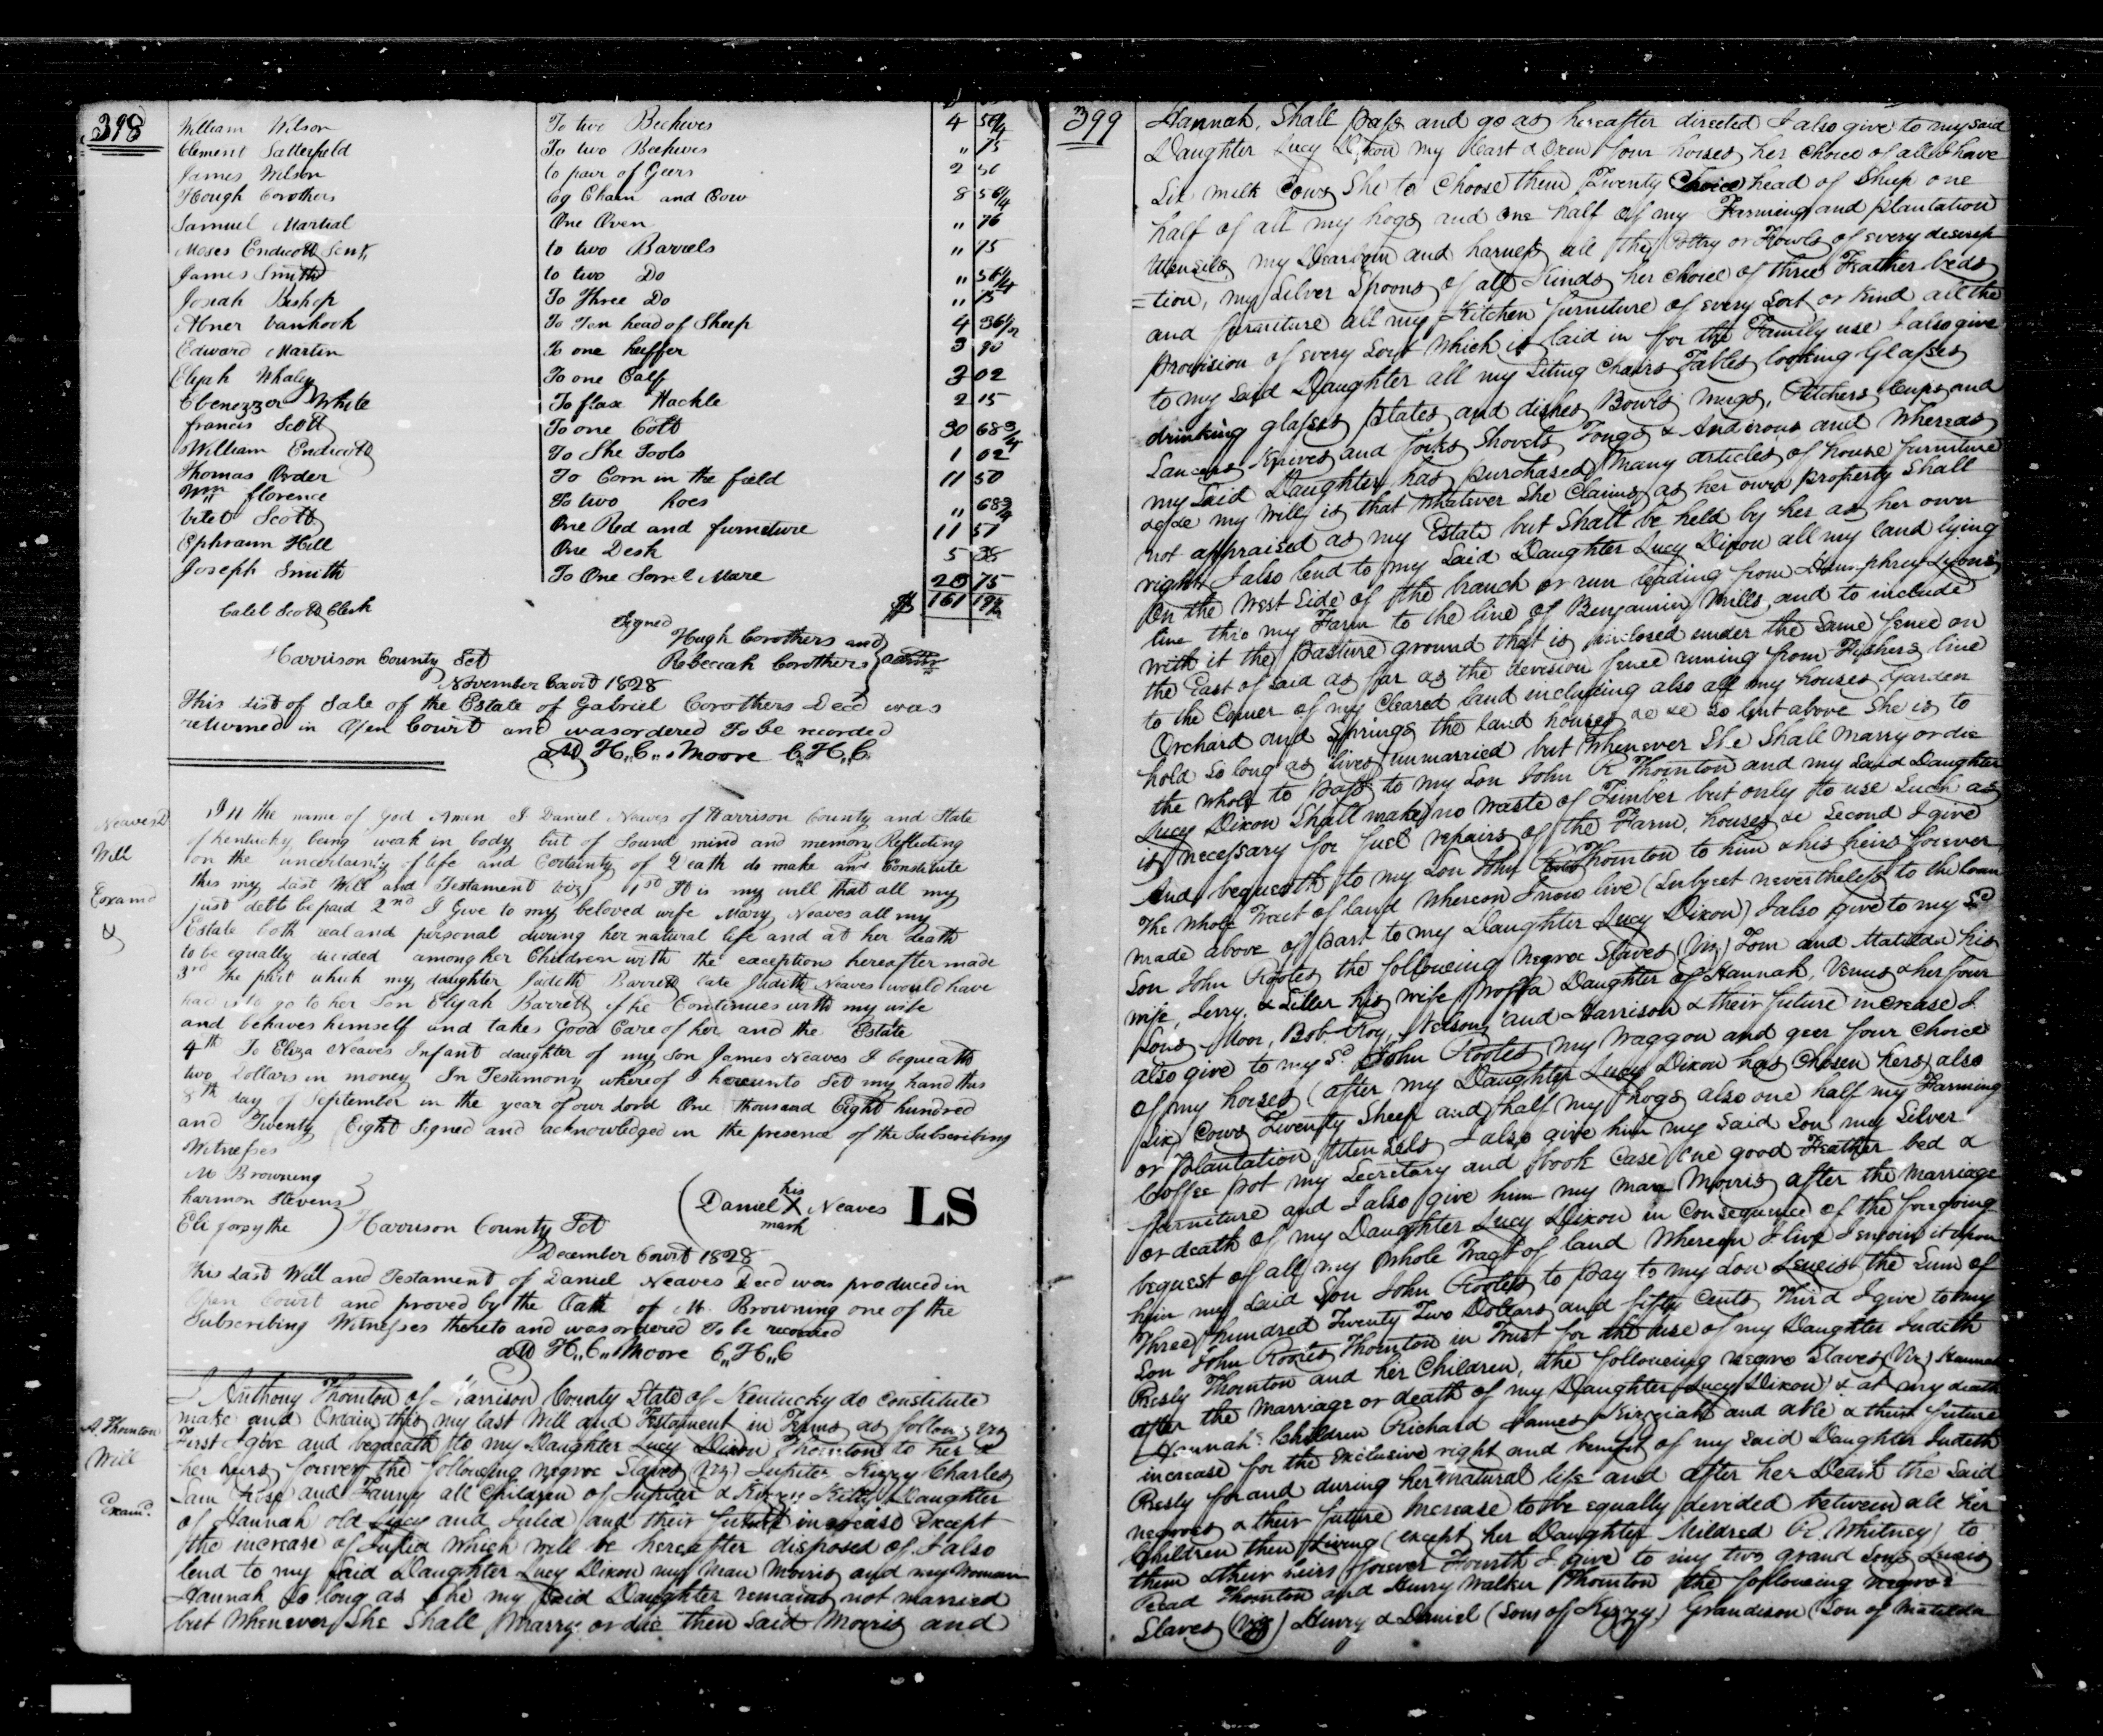 398
William Wilson To two Beehives 4 56¼
Clement Satterfield To two Beehives " 75
James Wilson to pair of Geers 2 50
Hough Corothers Log Chain and Cow 8 56¼
Samuel Martial One Oven " 76
Moses Endicott Senr, to two Barrels " 75
James Smith to two Do " 56¼
Josiah Bishop To Three Do " 75
Abner Vanhook To Ten head of Sheep 4 36½
Edward Martin To one heiffer 3 90
Elijah Whaley To one Calf 3 02
Ebenezzer White To flax Hackle 2 15
francis Scott To one Colt 30 68¾
William Endicott To Shoe Tools 1 02
Thomas Order To Corn in the field 11 50
Wm florence To two hoes " 68¾
Scott One Bed and furneture 11 51
Ephraim Hill One Desk 5 38
Joseph Smith To One Sorrel Mare 20 75
Caleb Scott Clerk $ 161 19½
Signed
Hugh Corothers and
Rebeccah Corothers
Harrison County Sct
November Court 1828
This List of Sale of the Estate of Gabriel Corothers Decd was
returned in Open Court and was ordered To be recorded
Att H,,C,, Moore C,,H,,C
Neaves D
Will
Examd
&
In the name of God Amen I Daniel Neaves of Harrison County and State
of Kentucky being weak in body but of Sound mind and memory Reflecting
on the uncertainty of life and Certainty of Death do make and Constitute
this my Last Will and Testament viz 1st It is my will that all my
just debts be paid 2nd I Give to my beloved wife Mary Neaves all my
Estate both real and personal during her natural life and at her death
to be equally divided among her Children with the exceptions hereafter made
3rd The part which my daughter Judith Barrett late Judith Neaves would have
had is to go to her Son Elijah Barrett if he Continues with my wife
and behaves himself and takes Good Care of her and the Estate
4th To Eliza Neaves Infant daughter of my Son James Neaves I bequeath
two Dollars in money In Testimony whereof I hereunto Set my hand this
8th day of September in the year of our Lord One thousand Eight hundred
and Twenty Eight Signed and acknowledged in the presence of the Subscribing
Witnesses
M Browning
harmon Stevens
Eli forsythe
Daniel his X mark Neaves LS
Harrison County Sct
December Court 1828
This Last Will and Testament of Daniel Neaves Decd was produced in
Open Court and proved by the Oath of M. Browning one of the
Subscribing Witnesses thereto and was ordered To be recorded
Att H,,C,, Moore C,,H,,C
A. Thornton
Will
Examd.
I Anthony Thornton of Harrison County State of Kentucky do constitute
make and Ordain this my last Will and Testament in Terms as follows viz
First I give and bequeath to my Daughter Lucy Dixon Thornton to her &
her heirs forever the following negroe Slaves (viz) Jupiter Kizzy Charles
Sam Rose and Fanny all Children of Jupiter & Kizzy Kitty Daughter
of Hannah old Lucy and Julia and their future increase Except
the increase of Julia which will be hereafter disposed of I also
lend to my said Daughter Lucy Dixon my Man Morris and my Woman
Hannah So long as She my Said Daughter remains not married
but Whenever She Shall Marry or die then said Morris and
399
Hannah, Shall pass and go as hereafter directed I also give to my said
Daughter Lucy Dixon my Cart & Oxen four horses her choice of all I have
Six milk Cows She to Choose them Twenty Choice head of Sheep one
half of all my hogs and one half of my Farming and plantation
Utensils my Dearborn and harness all the Poltry or Fowls of every descrip
=tion, my Silver Spoons of all Kinds her choice of three Feather beds
and furniture all my Kitchen furniture of every Sort or kind all the
provision of every Sort Which is laid in for the Family use I also give
to my Said Daughter all my Siting Chairs Tables looking Glasses
drinking glasses plates and dishes Bowls mugs, Pitchers Cups and
Saucers Knives and forks Shovels Tongs & Andirons and Whereas
my Said Daughter has purchased Many articles of house furniture
&c &c my Will is that Whatever She Claims as her own property Shall
not appraised as my Estate but Shall be held by her as her own
right I also lend to my Said Daughter Lucy Dixon all my land lying
On the West Side of the branch or run leading from Humphrey Lyons
line thro my Farm to the line of Benjamin Mills, and to include
with it the pasture ground that is inclosed under the Same fence on
the East of said as far as the devision fence runing from Fishers line
to the Corner of my Cleared land including also all my houses Garden
Orchard and Springs the land houses &c &c So lent above She is to
hold So long as lives unmarried but Whenever She Shall Marry or die
the whole to pass to my Son John R Thornton and my Said Daughter
Lucy Dixon Shall make no waste of Timber but only to use Such as
is necessary for fuel repairs of the Farm, houses &c Second I give
And bequeath to my Son John Thornton to him & his heirs forever
The whole Tract of land Whereon I now live (Subject nevertheless to the loan
made above of part to my Daughter Lucy Dixon) I also give to my Sd
Son John Rootes the following Negroe Slaves (Viz) Tom and Matilda his
wife, Jerry, & Siller his wife Daughter of Hannah, Venus & her four
Sons Moor, Bob. Troy, Nelson and Harrison & their future increase I
also give to my Sd John Rootes my Waggon and geer four choice
of my horses (after my Daughter Lucy Dixon has Chosen hers) also
Six Cows Twenty Sheep and half my hogs also one half my Farming
or plantation Utensils I also give him my said Son my Silver
Coffee pot my Secretary and book Case one good Feather bed &
furniture and I also give him my man Morris after the Marriage
or death of my Daughter Lucy Dixon in Consequence of the foregoing
bequest of all my Whole Tract of land Whereon I live I enjoin it upon
him my Said Son John Rootes to pay to my Son Lewis the Sum of
Three hundred Twenty Two Dollars and fifty Cents Third I give to my
Son John Rootes Thornton in Trust for the use of my Daughter Judith
Presly Thornton and her Children, the following negro Slaves (Viz) Hannah
after the Marriage or death of my Daughter Lucy Dixon & at my death
Hannah's Children Richard James Kizziah and able & their future
increase for the exclusive right and benefit of my said Daughter Judith
Presly for and during her natural life and after her Death the Said
negroes & their future Increase to be equally divided between all her
Children then Living (except her Daughter Mildred R. Whitney) to
them & their heirs forever Fourth I give to my two grand Sons Lewis
Thornton and Henry Walker Thornton the following negroe
Slaves (viz) Henry & Daniel (Sons of Kizzy) Grandison (Son of Matilda